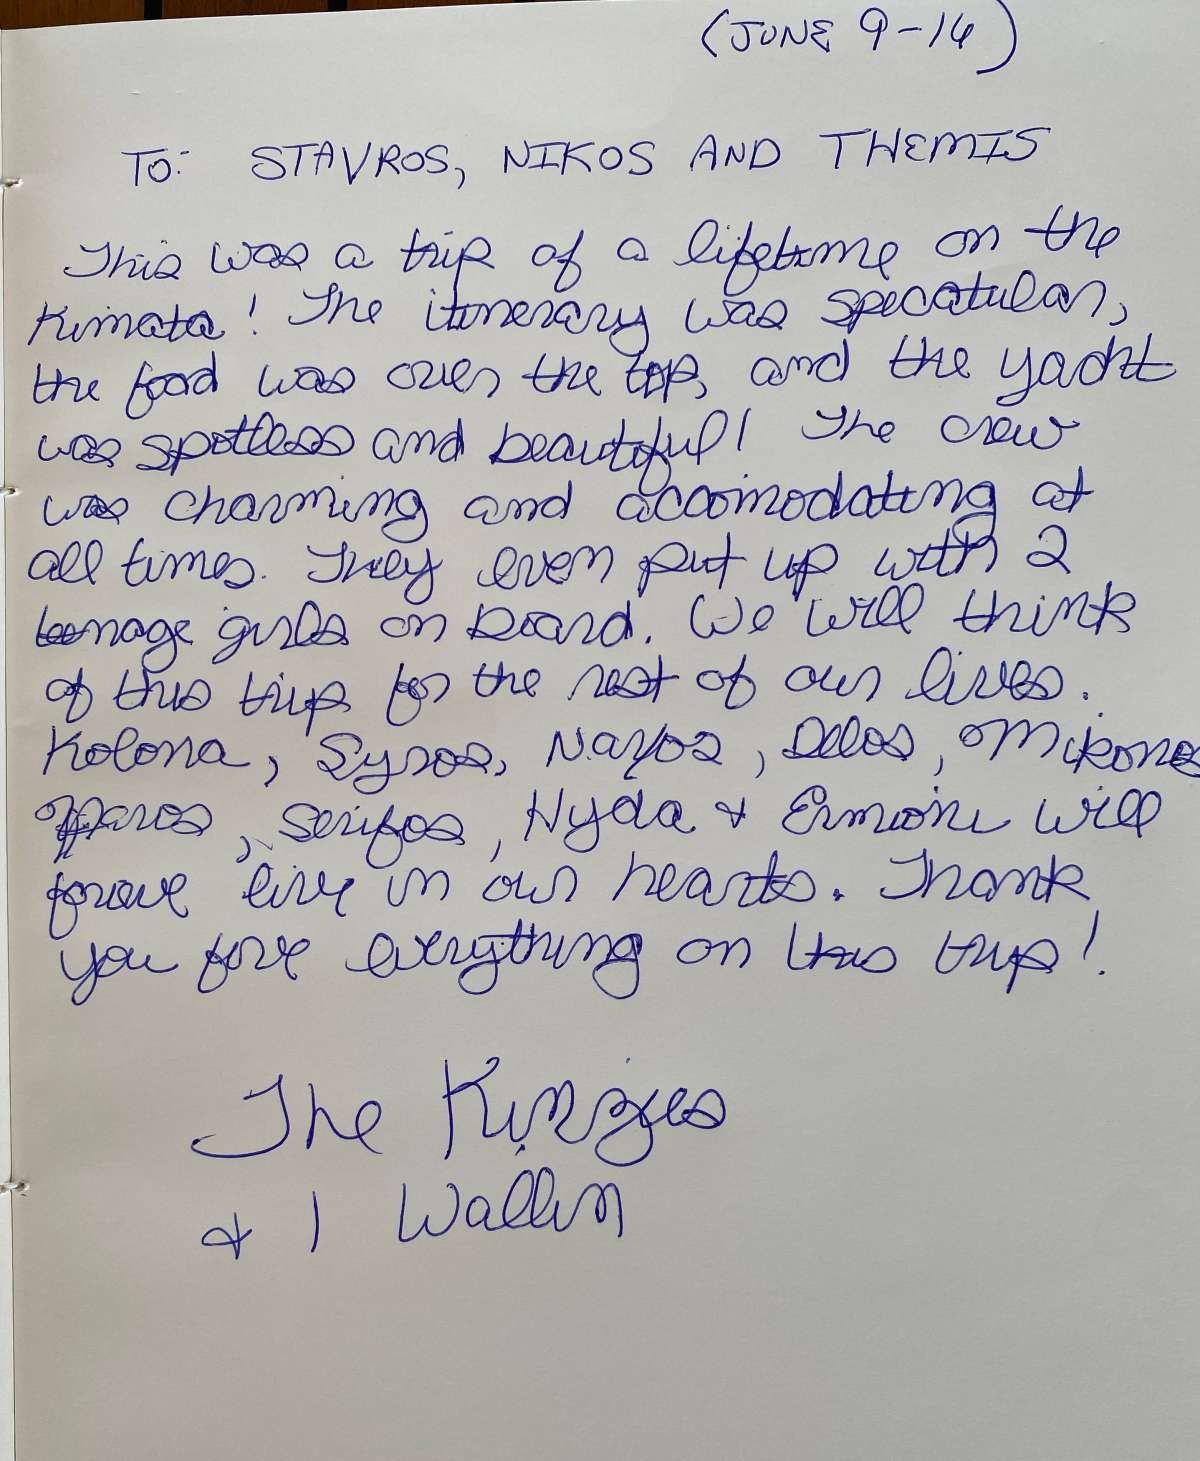 (JUNE 9-14)
TO: STAVROS, NIKOS AND THEMIS
This was a trip of a lifetime on the
Kimata! The itinerary was specatular,
the food was over the top, and the yacht
was spotless and beautiful! The crew
was charming and accomodating at
all times. They even put up with 2
teenage girls on board. We will think
of this trip for the rest of our lives.
Kolona, Syros, Naxos, Delos, Mikonos
Paros, Serifos, Hyda & Ermioni will
forever live in our hearts. Thank
you for everything on this trip!
The Kinzies
& 1 Wallin